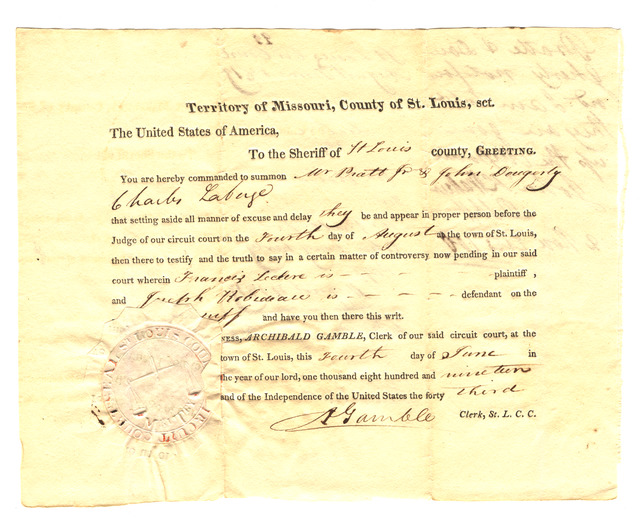 Territory of Missouri, County of St. Louis, sct.
The United States of America,
To the Sheriff of St Louis county, GREETING.
You are hereby commanded to summon Mr Pratt Jr & John Dougerty
Charles Laberge
that setting aside all manner of excuse and delay they be and appear in proper person before the
Judge of our circuit court on the Fourth day of August at the town of St. Louis,
then there to testify and the truth to say in a certain matter of controversy now pending in our said
court wherein Francis Leclerc is - - - - plaintiff ,
and Joseph Robidoux is - - - - defendant on the
and have you then there this writ.
NESS, ARCHIBALD GAMBLE, Clerk of our said circuit court, at the
town of St. Louis, this Fourth day of June in
the year of our lord, one thousand eight hundred and nineteen
and of the Independence of the United States the forty third
A Gamble Clerk, St. L. C. C.